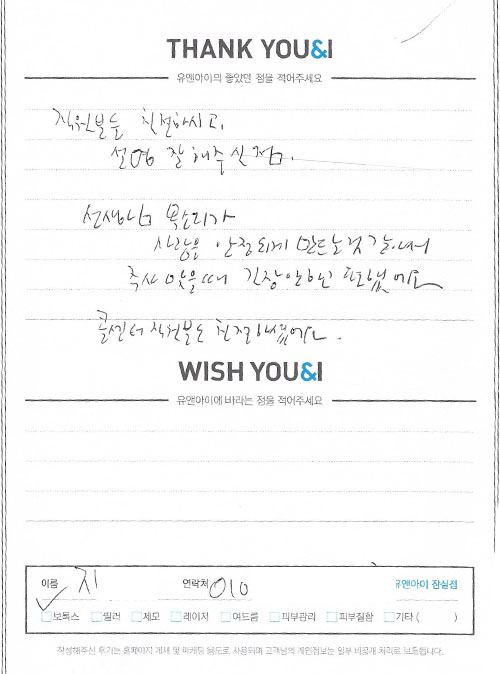 THANK YOU&I
유앤아이의 좋았던 점을 적어주세요
직원분들 친절하시고,
설명 잘 해주신 점.
선생님 목소리가
사람을 안정되게 만드는것 같아서
주사 맞을때 긴장 안하고
콜센터 직원분도 친절하셨어요.
WISH YOU&I
유앤아이에 바라는 점을 적어주세요
이름 지 연락처 010 유앤아이 잠실점
보톡스 필러 제모 레이저 여드름 피부관리 피부질환 기타 ( )
작성해주신 후기는 홈페이지 게재 및 마케팅 용도로 사용되며 고객님의 개인정보는 일부 비공개 처리로 보호됩니다.